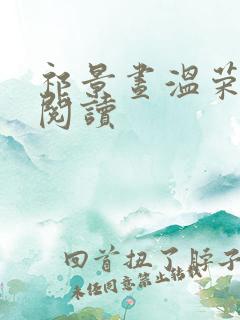 祁景晝溫荣
閱讀
回首扭了脖子
未经同意禁止转载